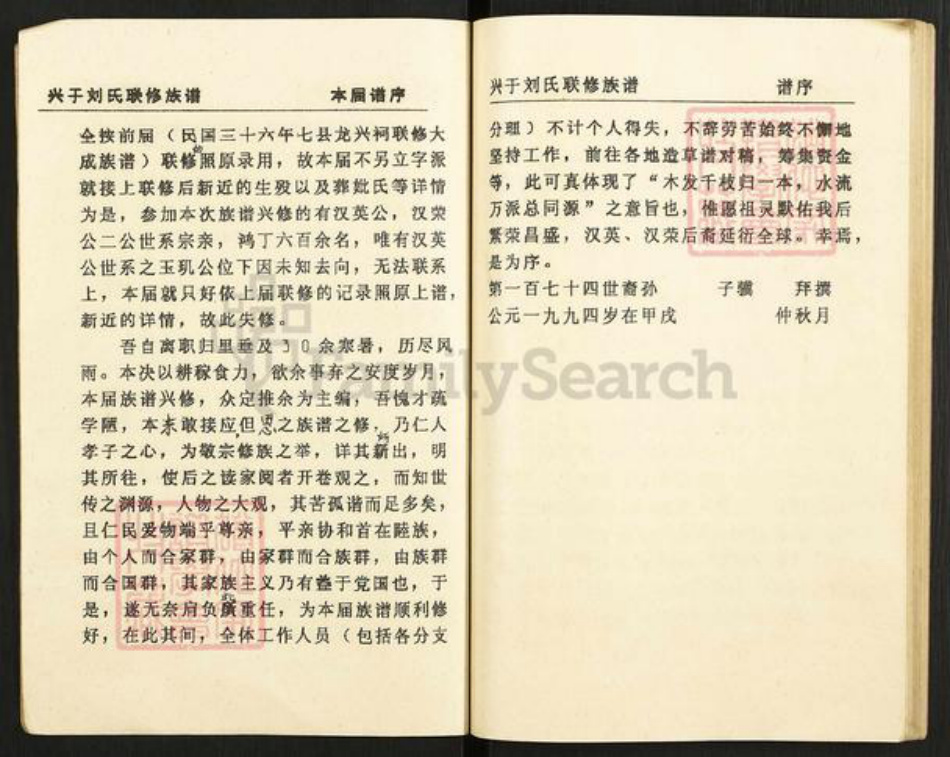 兴于刘氏联修族谱 本届谱序
全按前届（民国三十六年七县龙兴祠联修大
成族谱）联修的照原录用，故本届不另立字派
就接上联修后新近的生殁以及葬妣氏等详情
为是，参加本次族谱兴修的有汉英公，汉荣
公二公世系宗亲，鸿丁六百余名，唯有汉英
公世系之玉玑公位下因未知去向，无法联系
上，本届就只好依上届联修的记录照原上谱，
新近的详情，故此失修。
吾自离职归里垂及30余寒暑，历尽风
雨。本决以耕稼食力，欲余事弃之安度岁月，
本届族谱兴修，众定推余为主编，吾愧才疏
学陋，本未敢接应但思之族谱之修，乃仁人
孝子之心，为敬宗修族之举，详其所出，明
其所往，使后之读家阅者开卷观之，而知世
传之渊源，人物之大观，其苦孤谐而足多矣，
且仁民爱物端乎尊亲，平亲协和首在睦族，
由个人而合家群，由家群而合族群，由族群
而合国群，其家族主义乃有益于党国也，于
是，遂无奈肩负此重任，为本届族谱顺利修
好，在此其间，全体工作人员（包括各分支
兴于刘氏联修族谱 谱序
分理）不计个人得失，不辞劳苦始终不懈地
坚持工作，前往各地造草谱对稿，筹集资金
等，此可真体现了“木发千枝归一本，水流
万派总同源”之意旨也，惟愿祖灵默佑我后
繁荣昌盛，汉英、汉荣后裔延衍全球。幸焉，
是为序。
第一百七十四世裔孙 子骥 拜撰
公元一九九四岁在甲戌 仲秋月
FamilySearch